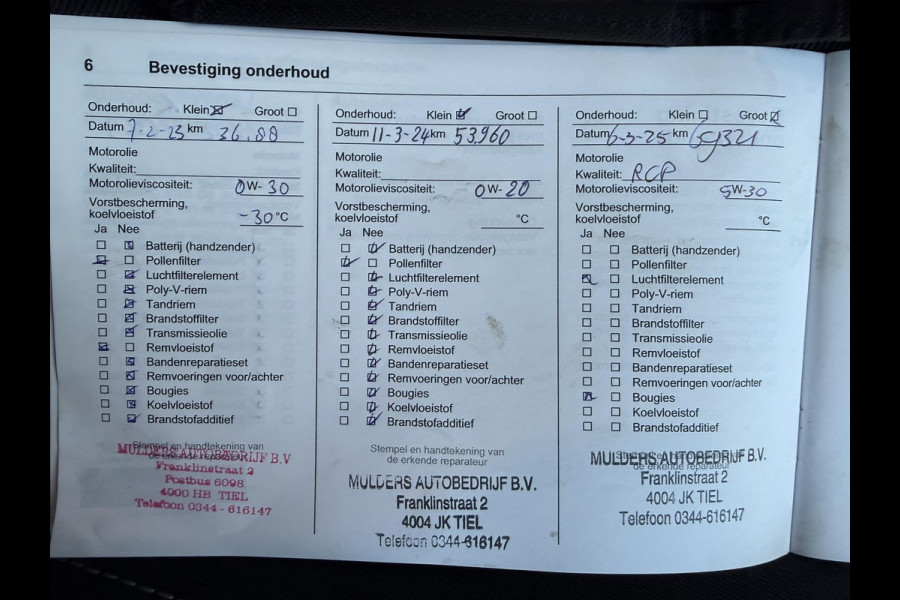 6 Bevestiging onderhoud
Onderhoud: Klein ☒ Groot ☐
Datum 7-2-23 km 36.88
Motorolie
Kwaliteit:
Motorolieviscositeit: 0W-30
Vorstbescherming,
koelvloeistof -30°C
Ja Nee
Batterij (handzender)
Pollenfilter
Luchtfilterelement
Poly-V-riem
Tandriem
Brandstoffilter
Transmissieolie
Remvloeistof
Bandenreparatieset
Remvoeringen voor/achter
Bougies
Koelvloeistof
Brandstofadditief
Stempel en handtekening van
de erkende reparateur
MULDERS AUTOBEDRIJF B.V
Franklinstraat 2
Postbus 6098
4000 HB TIEL
Telefoon 0344-616147
Onderhoud: Klein ☒ Groot ☐
Datum 11-3-24 km 53.960
Motorolie
Kwaliteit:
Motorolieviscositeit: 0W-20
Vorstbescherming,
koelvloeistof °C
Ja Nee
Batterij (handzender)
Pollenfilter
Luchtfilterelement
Poly-V-riem
Tandriem
Brandstoffilter
Transmissieolie
Remvloeistof
Bandenreparatieset
Remvoeringen voor/achter
Bougies
Koelvloeistof
Brandstofadditief
Stempel en handtekening van
de erkende reparateur
MULDERS AUTOBEDRIJF B.V.
Franklinstraat 2
4004 JK TIEL
Telefoon 0344-616147
Onderhoud: Klein ☐ Groot ☒
Datum 6-3-25 km 69321
Motorolie
Kwaliteit: RCP
Motorolieviscositeit: 5W-30
Vorstbescherming,
koelvloeistof °C
Ja Nee
Batterij (handzender)
Pollenfilter
Luchtfilterelement
Poly-V-riem
Tandriem
Brandstoffilter
Transmissieolie
Remvloeistof
Bandenreparatieset
Remvoeringen voor/achter
Bougies
Koelvloeistof
Brandstofadditief
de erkende reparateur
MULDERS AUTOBEDRIJF B.V.
Franklinstraat 2
4004 JK TIEL
Telefoon 0344-616147